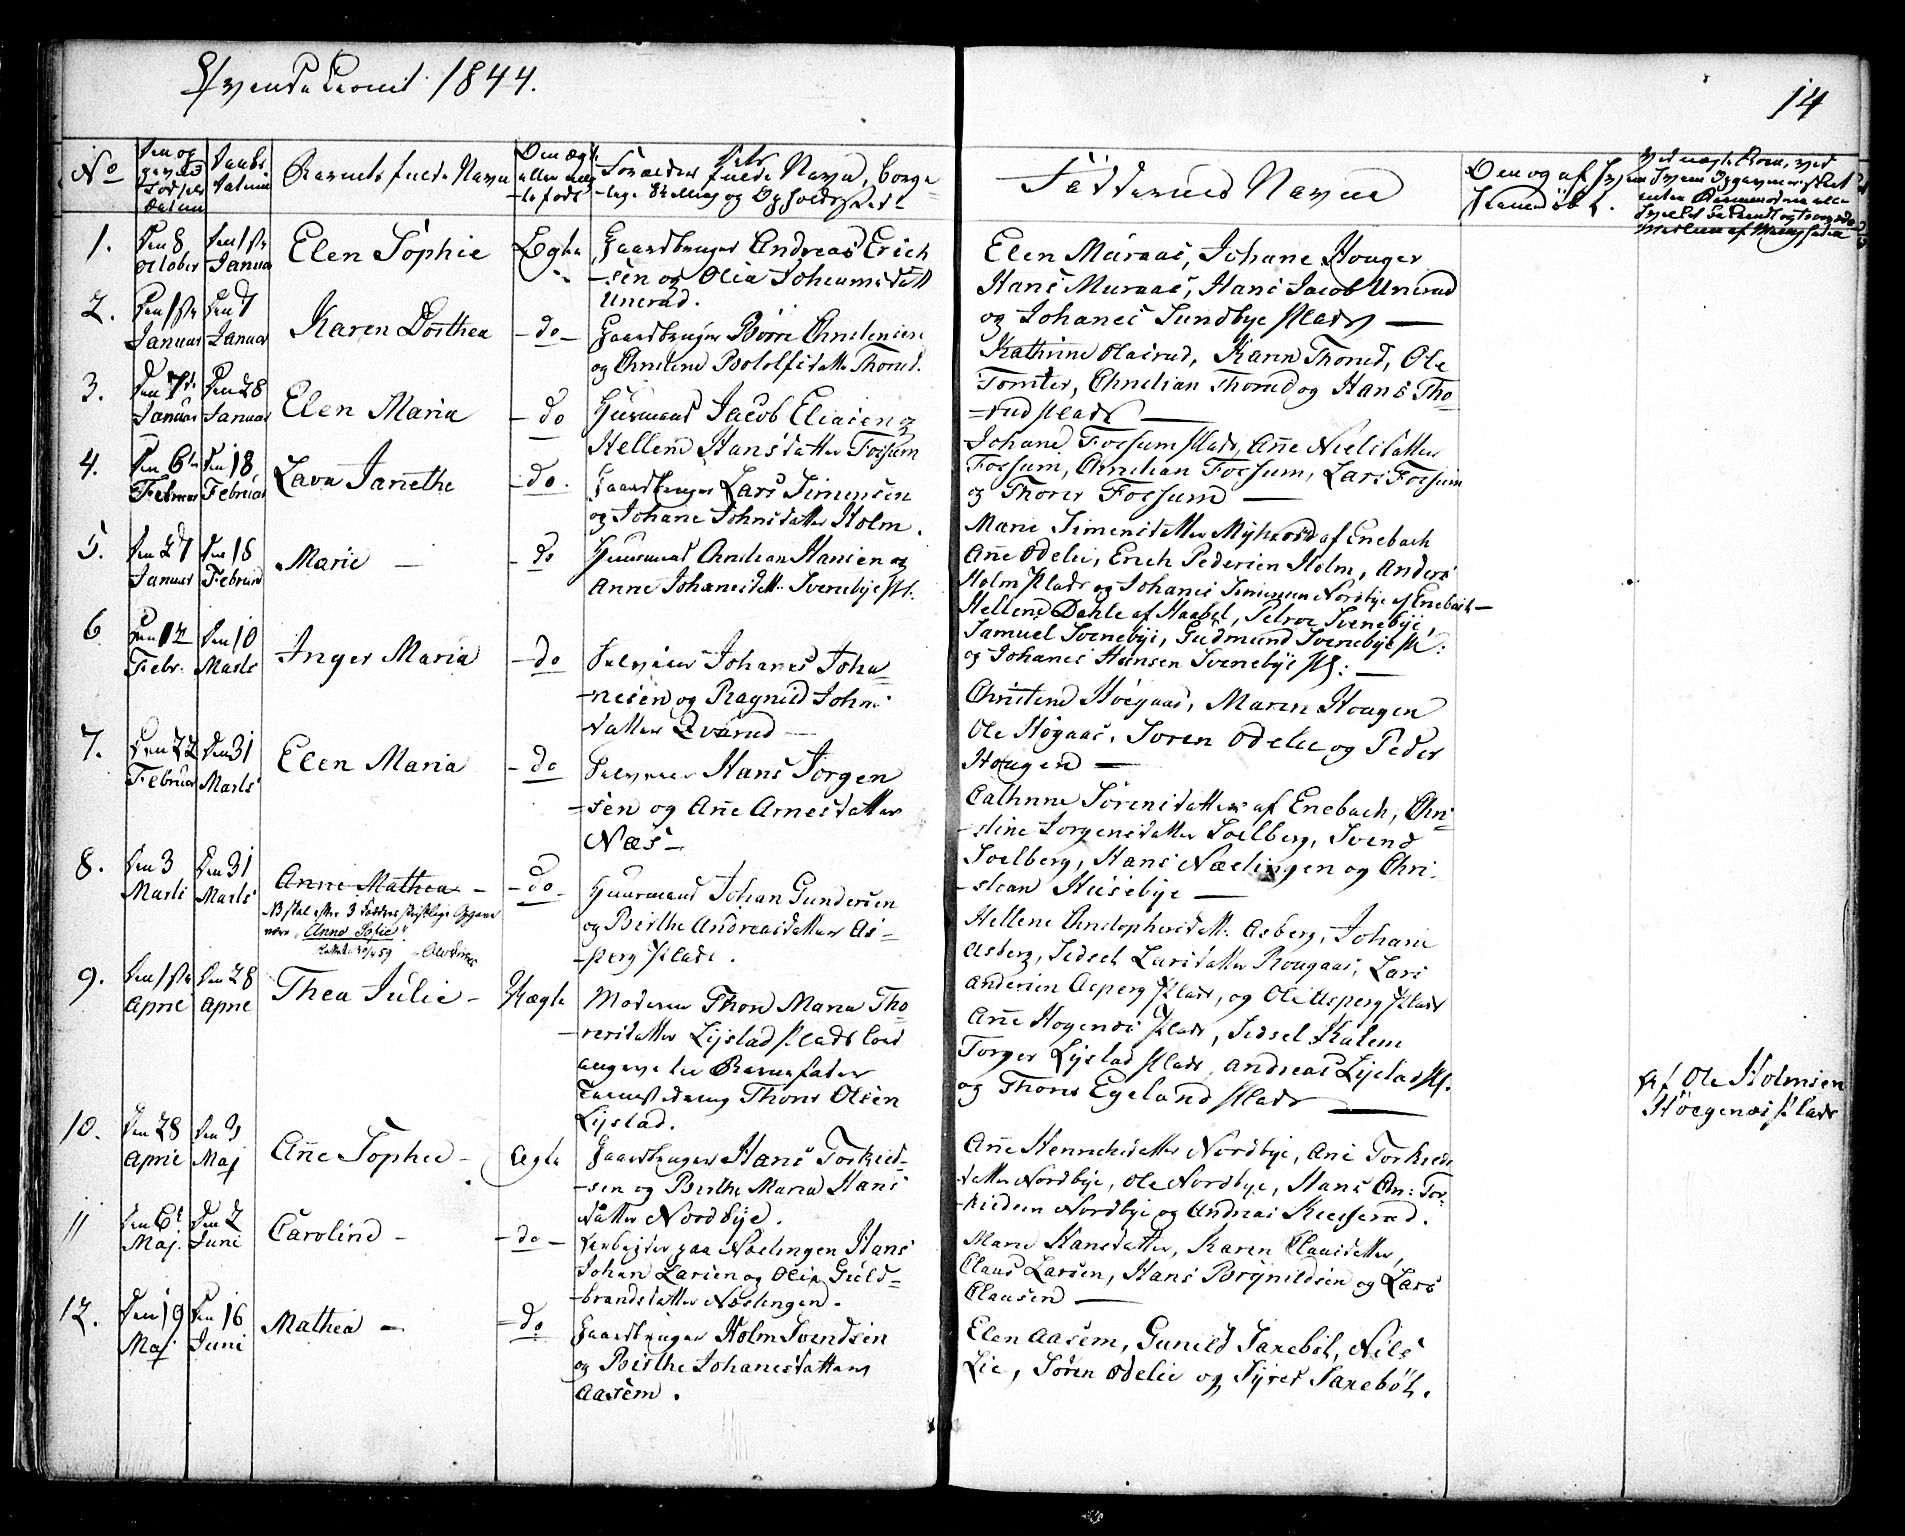 1844.
14
No
Barnets fulde Navn
Faddernes Navne
1.
Den 8
October
Den 1ste
Januar
Elen Sophie
Ægte
Gaardbruger Andreas Erich
-sen og Olia Johannisdatt
Unerud.
Elen Muraas, Johane Houger
Hans Muraas, Hans Jacob Unerud
og Johanes Sundbye Plads —
2.
Den 1ste
Januar
Den 7
Januar
Karen Dorthea
- do -
Gaardbruger Börre Christensen
og Christine Botolfsdatter Thorud.
Kathrine Olasrud, Karen Thorud, Ole
Tomter, Christian Thorud og Hans Tho-
-rud Plads —
3.
Den 7de
Januar
Den 28
Januar
Elen Maria
- do
Huusmand Jacob Eliasen og
Hellene Hansdatter Fossum
Johane Fossum Plads, Añe Nielsdatter
Fossum, Christian Fossum, Lars Fossum
og Thorer Fossum —
4.
Den 6te
Februar
Den 18
Februar
Janethe
- do -
Gaardbruger Lars Simensen
og Johane Johnsdatter Holm.
Marie Simensdatter af Enebach
Añe Odelie, Erich Pedersen Holm, Anders
Holm Plads og Johanes Simensen Nordbye af Enebach —
5.
Den 27
Januar
Den 18
Februar
Marie —
- do
Huusmand Christian Hansen og
Anne Johanesdatt: Svenebye Pl.
Hellene Dahle af Haabøl, Svenebye,
Samuel Svenebye, Gudmund Svenebye Pl:
og Johanes Hansen Svenebye Pl: —
6
Den 12
Febr.
Den 10
Marts
Inger Maria
- do
Selveier Johanes Joha-
-nesen og Ragnild Johns
datter
Christine Høegaas, Maren Hougen
Ole Høgaas, Soren Odelie og Peder
Hougen —
7.
Den 22
Februar
Den 31
Marts
Elen Maria
- do
Selveier Hans Jorgen
-sen og Añe Arnesdatter
Næs -
Cathrine Sörensdatter af Enebach, Chri-
-stine Jorgensdatter Solberg, Svend
Solberg, Hans Næslingen og Chri-
-stean Husebye —
8.
Den 3
Marts
Den 31
Marts
Anne Mathea -
NB skal efter 3 Fadderes skriftlige Opgave
være "Anne Sofie".
- do -
Huusmand Johan Gundersen
og Birthe Andreasdatter As-
-perg Plads.
Hellene Christophersdatt: Asberg, Johane
Asberg, Sedsel Larsdatter Rougaas, Lars
Andersen Asperg Plads, og Ole Asperg Plads
9.
Den 1ste
April
Den 28
April
Thea Julie -
Uægte
Moderen Thone Maria Tho-
-rersdatter Lystad Plads
angivelse Barnefader
Thorer Olsen
Lystad.
Añe Hogenæs Plads, Sedsel
Torger Lystad Plads, Andreas Lystad Pl.
og Thorer Egeland Plads —
Af Ole Holmsen
Høegenæs Plads
10.
Den 28
April
Den 3
Maj
Añe Sophie -
Ægte
Gaardbruger Hans Torkied-
-sen og Birthe Maria Hans
datter Nordbye.
Añe Henrichsdatter Nordbye, Ane Torkieds
datter Nordbye, Ole Nordbye, Hans Chr: Tor-
-kiedsen Nordbye og Andreas
11
Den 6t
Maj.
Den 2
Juni
Caroline -
- do -
Arbejder paa Næslingen Hans
Johan Larsen og Olia Guld-
-brandsdatter Næslingen.
Marie Hansdatter, Karen Clausdatter,
Claus Larsen, Hans Brynildsen og Lars
Clausen —
12.
Den 19
Maj
Den 16
Juni
Mathea -
- do
Gaardbruger Holm Svendsen
og Birthe Johanesdatter
Aasem.
Elen Aasem, Gunild Saxebøl, Nils
Lie, Sören Odelie og Syver Saxebøl.